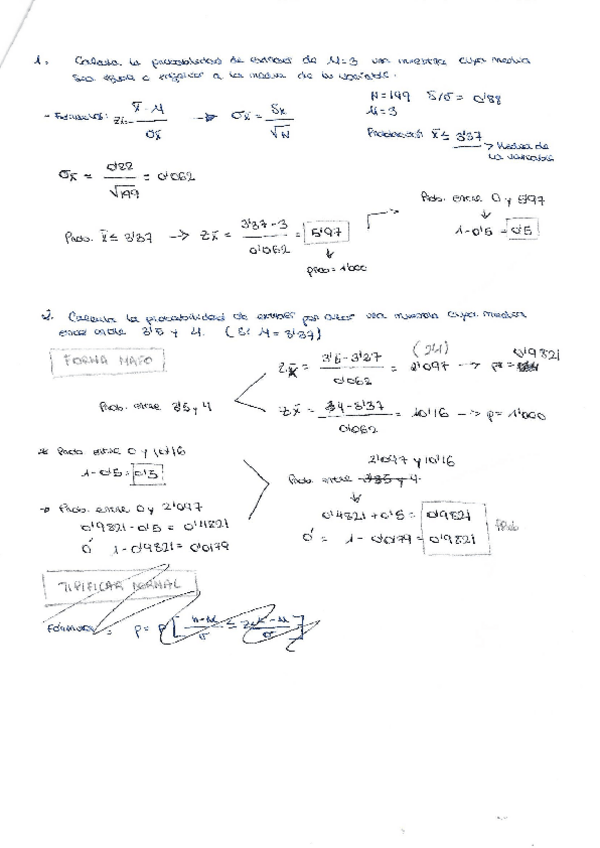 1. Calcula la probabilidad de extraer de M=3 una muestra cuya media
sea igual o inferior a la media de la variable.
N=199 S/σ= 0'88
M=3
- Formulas: Zx̄= x̄-M / σx̄ → σx̄ = Sx / √N
Probabilidad x̄ ≤ 3'37
→ Media de
la variable
σx̄ = 0'88 / √199 = 0'062
Prob. x̄ ≤ 3'37 → Zx̄ = 3'37-3 / 0'062 = 5'97
↓
prob = 1'000
Prob. entre 0 y 5'97
↓
1-0'5 = 0'5
2. Calcula la probabilidad de extraer por azar una muestra cuya media
esté entre 3'5 y 4. (Si M=3'37)
FORMA
Prob. entre 3'5 y 4
Zx̄ = 3'5-3'37 / 0'062 = 2'097 → p = 0'9821
(2'1)
Zx̄ = 4-3'37 / 0'062 = 10'16 → p = 1'000
Prob entre 0 y 10'16
1-0'5 = 0'5
→ Prob. entre 0 y 2'097
0'9821-0'5 = 0'4821
ó 1-0'9821 = 0'0179
2'097 y 10'16
Prob. entre 3'5 y 4
↓
0'4821 + 0'5 = 0'9821
ó 1-0'0179 = 0'9821
Prob
TIPIFICAR NORMAL
Formula: p = P